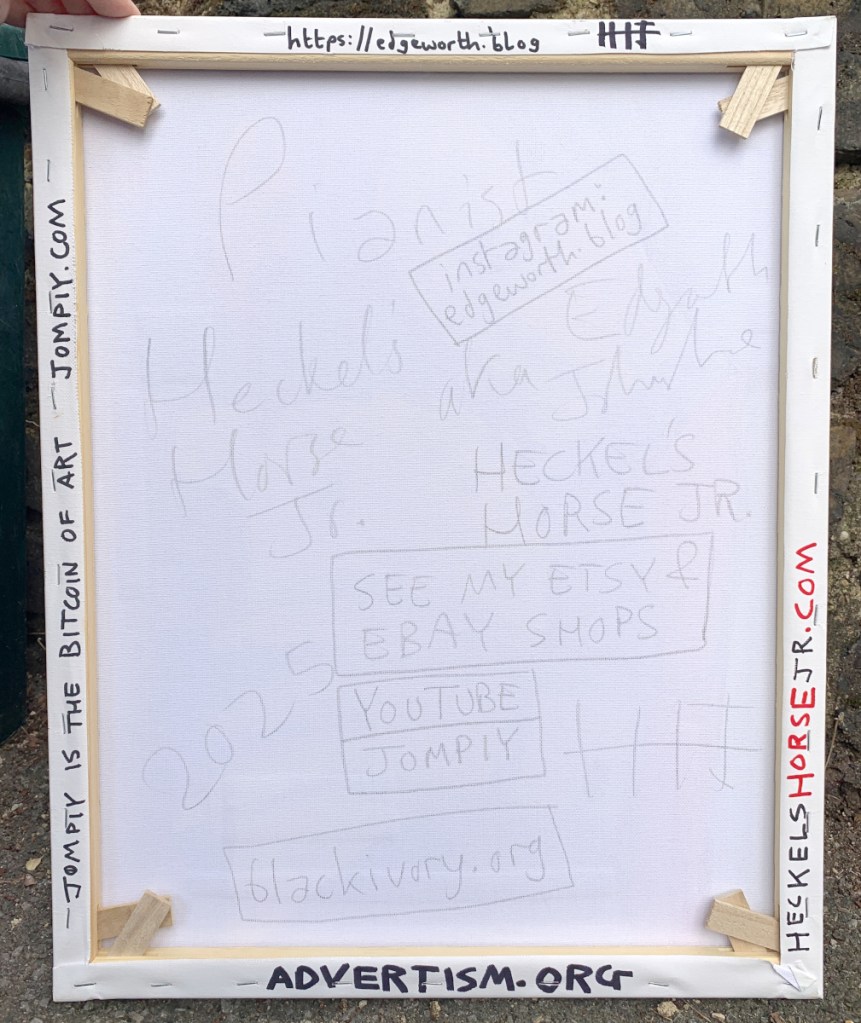 https://edgeworth.blog HHJ
Pianist
instagram:
edgeworth.blog
Heckel's
Horse
Jr.
aka
HECKEL'S
HORSE JR.
SEE MY ETSY &
EBAY SHOPS
2025
YOUTUBE
JOMPIY
HHJ
blackivory.org
JOMPIY IS THE BITCOIN OF ART - JOMPIY.COM
HECKELSHORSEJR.COM
ADVERTISM.ORG